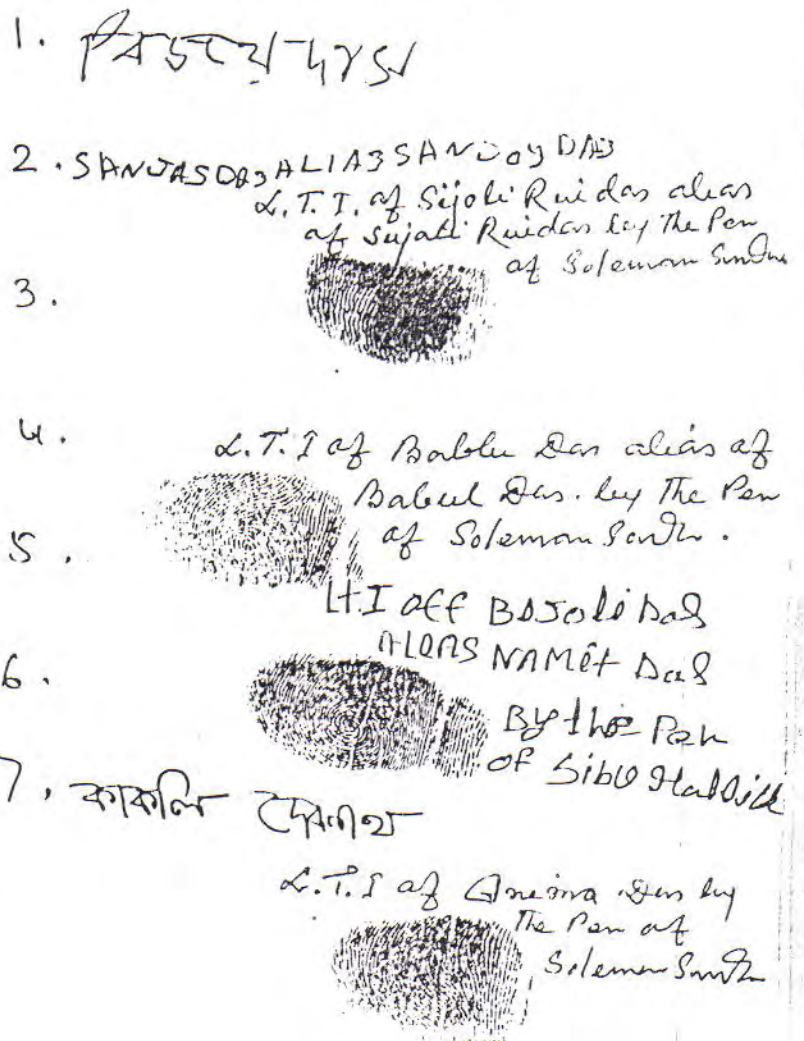 1.
2. SANJAS DAS ALIAS SANJOY DAS
L.T.I. of Sijoli Ruidas alias
of Sujali Ruidas by the Pen
of Soleman
3.
4.
L.T.I of Bablu Das alias of
Babul Das. by the Pen
of Soleman
5.
LT.I OFF BOJOli DAS
ALOAS NAMEt DAS
6.
By the Pen
OF Sibu
7. কাকলি দেবনাথ
L.T.I of Anima Das by
the Pen of
Soleman